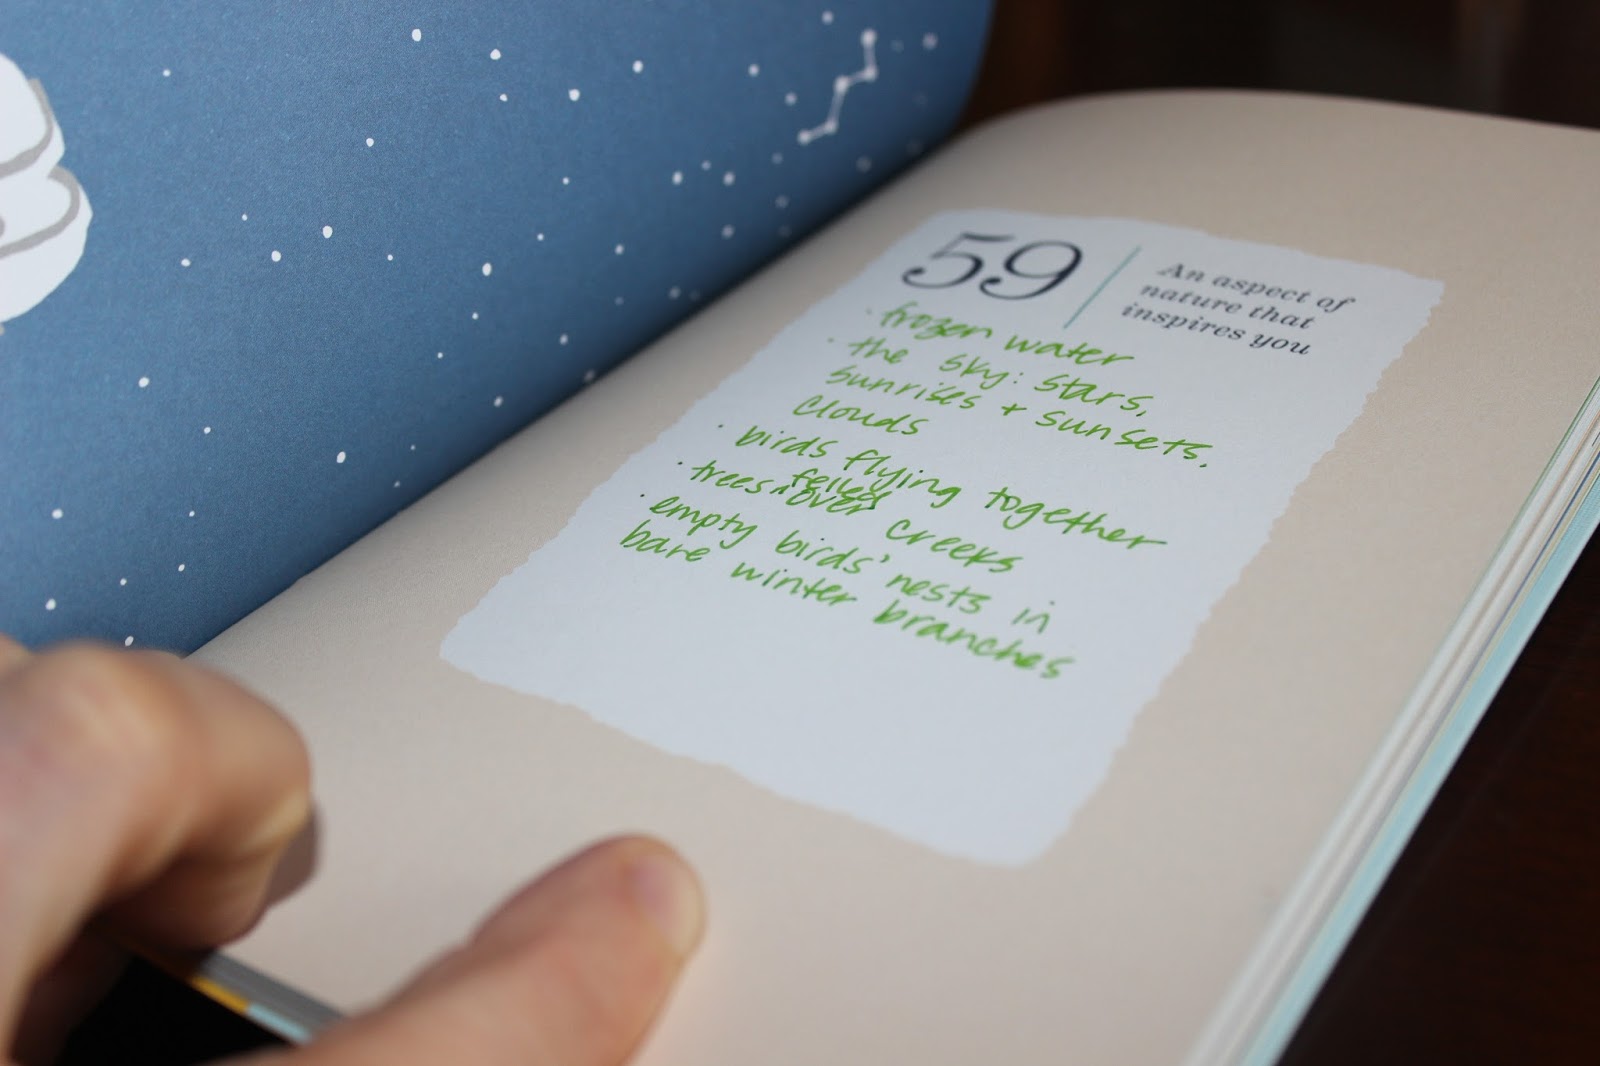 59
An aspect of
nature that
inspires you
· frozen water
· the sky: stars,
sunrises + sunsets,
clouds
· birds flying together
· trees ^ felled over creeks
· empty birds' nests in
bare winter branches